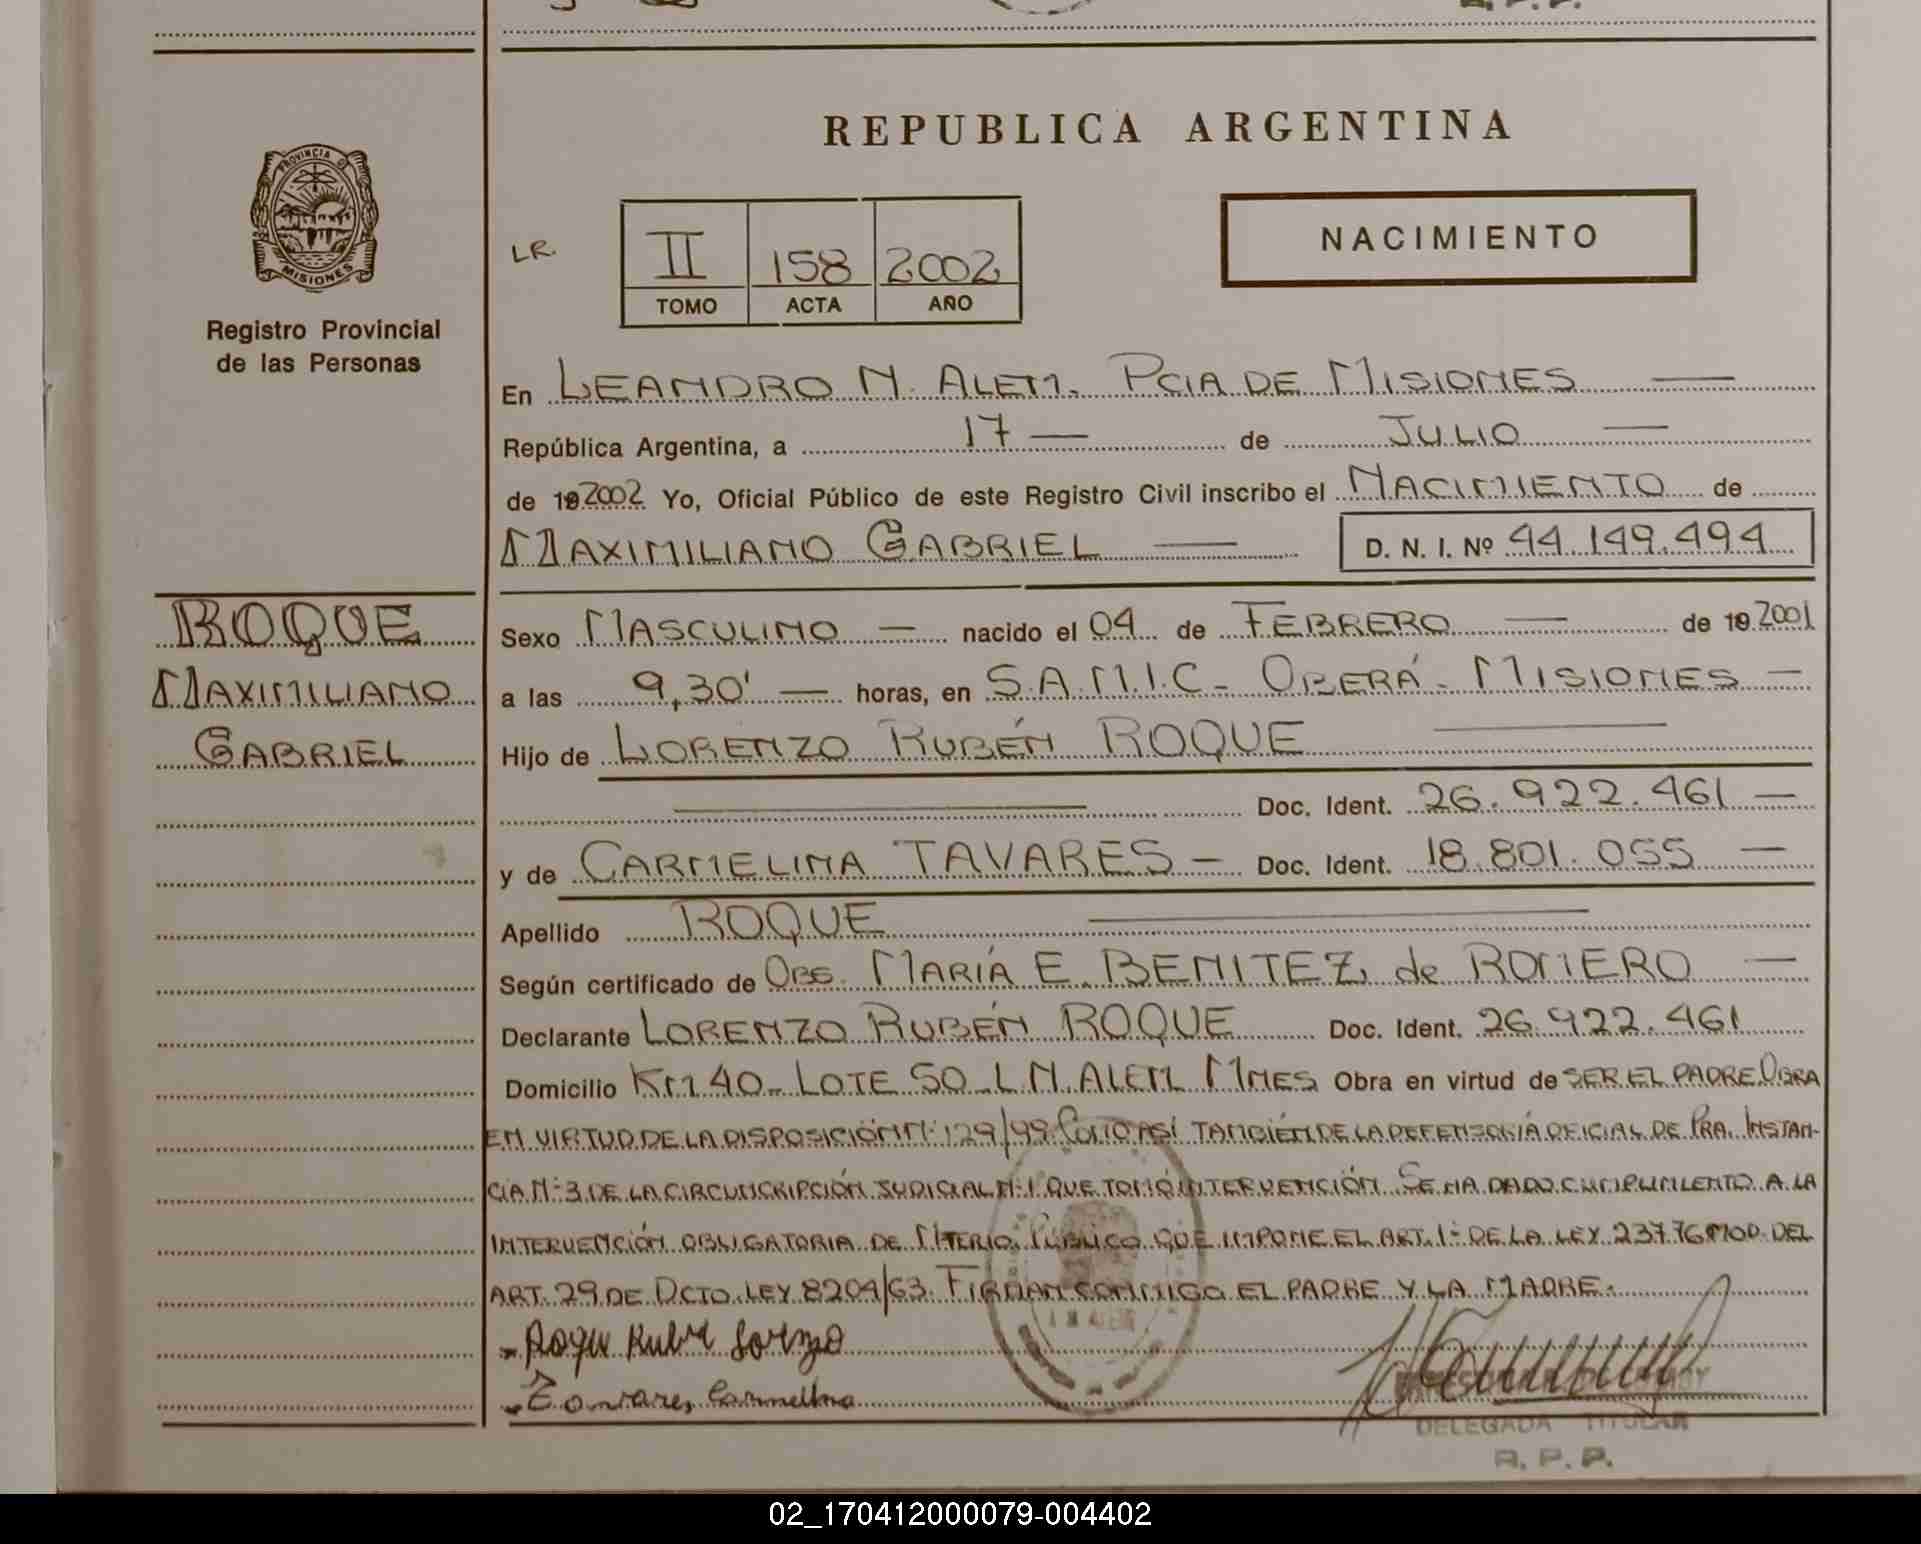 REPUBLICA ARGENTINA
PROVINCIA D
MISIONES
Registro Provincial
de las Personas
LR.
II 158 2002
TOMO ACTA AÑO
NACIMIENTO
En LEANDRO N. ALEM. PCIA DE MISIONES
República Argentina, a 17 de JULIO
de 192002 Yo, Oficial Público de este Registro Civil inscribo el NACIMIENTO de
MAXIMILIANO GABRIEL D. N. I. Nº 44.149.494
ROQUE
MAXIMILIANO
GABRIEL
Sexo MASCULINO nacido el 04 de FEBRERO de 192001
a las 9,30' horas, en S.A.M.I.C - OBERÁ - MISIONES
Hijo de LORENZO RUBÉN ROQUE
Doc. Ident. 26.922.461
y de CARMELINA TAVARES Doc. Ident. 18.801.055
Apellido ROQUE
Según certificado de OBS. MARÍA E. BENITEZ de ROMERO
Declarante LORENZO RUBÉN ROQUE Doc. Ident. 26.922.461
Domicilio KM 40 - LOTE 50 - L.N. ALEM MNES Obra en virtud de SER EL PADRE. OBRA
EN VIRTUD DE LA DISPOSICIÓN Nº 129/99 COMO ASÍ TAMBIÉN DE LA DEFENSORÍA OFICIAL DE PRA. INSTAN-
CIA Nº 3 DE LA CIRCUNSCRIPCIÓN JUDICIAL Nº 1 QUE TOMÓ INTERVENCIÓN. SE HA DADO CUMPLIMIENTO A LA
INTERVENCIÓN OBLIGATORIA DE MTERIO. PÚBLICO QUE IMPONE EL ART. 1º DE LA LEY 23776 MOD. DEL
ART. 29 DE DCTO. LEY 8204/63. FIRMAN CONMIGO EL PADRE Y LA MADRE.
Roque Rubén Lorenzo
Tavares, Carmelina
DELEGADA TITULAR
R. P. P.
02_170412000079-004402